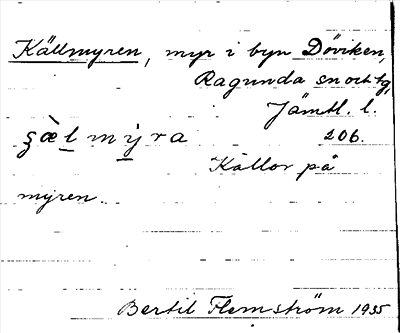 Källmyren, myr i byn Döviken,
Ragunda sn och tg,
Jämtl. l.
206.
Källor på
myren.
Bertil Flemström 1935